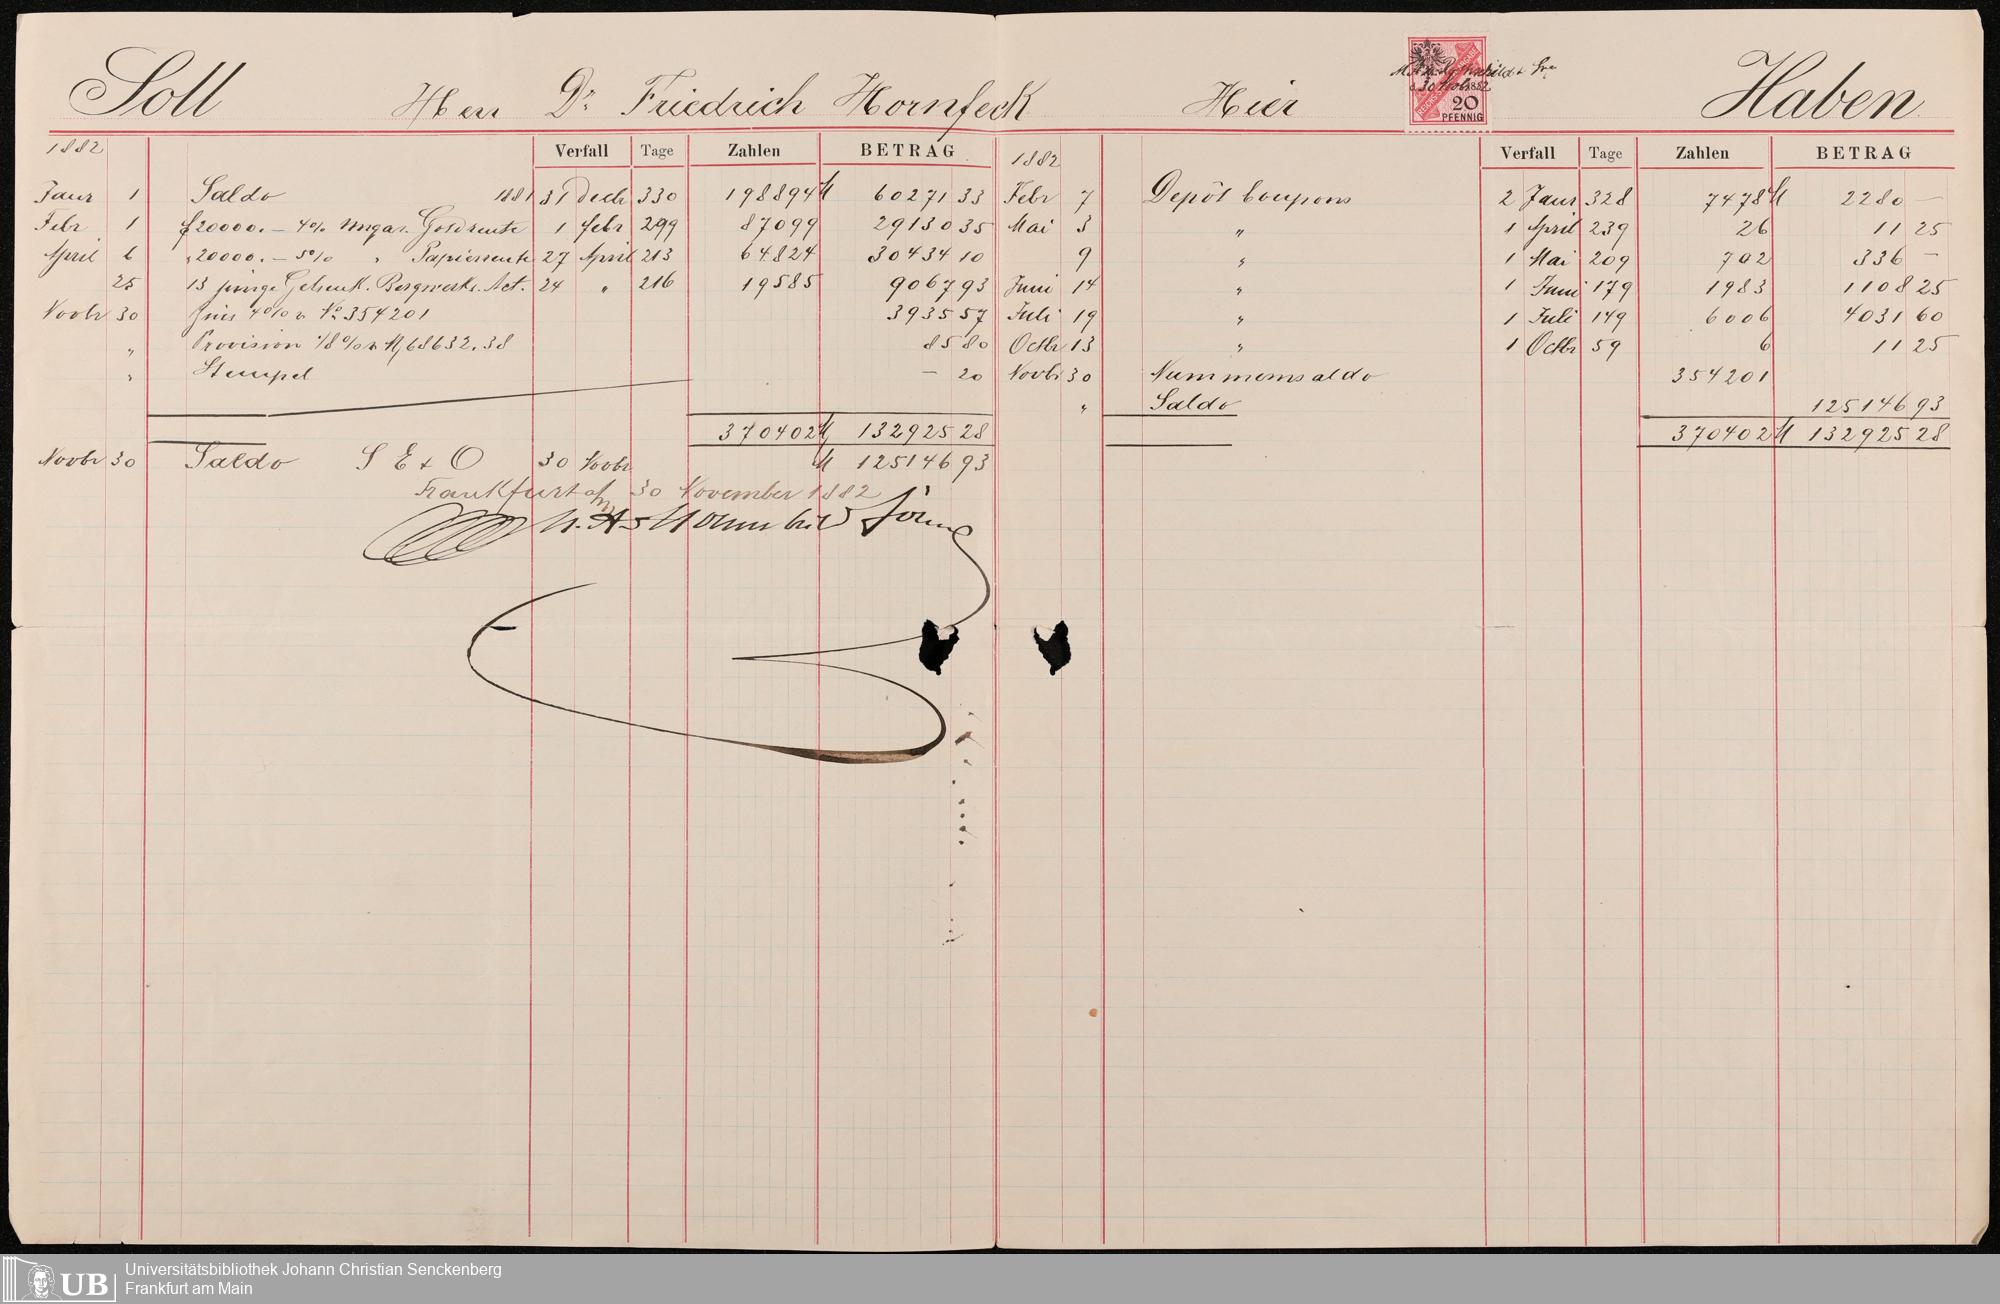 Soll Herr Dr. Friedrich Hornfeck Hier Haben
REICHS-STEMPELABGABE
M. A. von Rothschild & Sne
30 Nov 1882
20
PFENNIG
1882 Verfall Tage Zahlen BETRAG
Janr 1 Saldo 1881 31 Decb 330 198894 M 60271 33
Febr 1 f 20000. — 4% ungar. Goldrente 1 febr 299 87099 29130 35
April 6 " 20000. — 5% " Papierrente 27 April 213 64824 30434 10
25 13 junge Gelsenk. Bergwerks. Act. 24 " 216 19585 9067 93
Novbr 30 Zins 4% v No 354201 3935 57
" Provision 1/8% v M 68632.38 85 80
" Stempel — 20
370402 M 132925 28
Novbr 30 Saldo S E & O 30 Novbr M 125146 93
Frankfurt a/m 30 November 1882
1882 Verfall Tage Zahlen BETRAG
Febr 7 Depôt Coupons 2 Janr 328 7478 M 2280 —
Mai 3 " 1 April 239 26 11 25
9 " 1 Mai 209 702 336 —
Juni 14 " 1 Juni 179 1983 1108 25
Juli 19 " 1 Juli 149 6006 4031 60
Octbr 13 " 1 Octbr 59 6 11 25
Novbr 30 Nummernsaldo 354201
" Saldo 125146 93
370402 M 132925 28
UB
Universitätsbibliothek Johann Christian Senckenberg
Frankfurt am Main